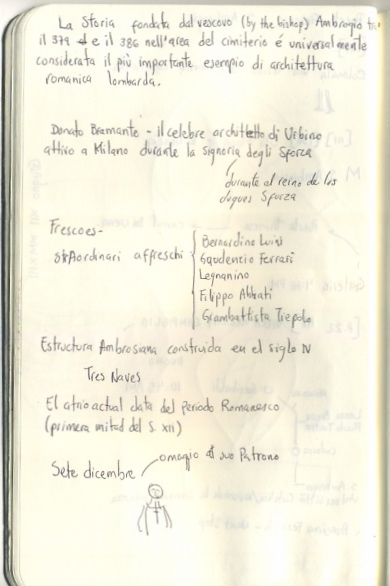 La Storia fondata dal vescovo (by the bishop) Ambrogio tra
il 379 e il 386 nell'area del cimiterio é universalmente
considerata il più importante esempio di architettura
romanica lombarda.
Donato Bramante - il celebre architetto di Urbino
attivo a Milano durante la Signoria degli Sforza
durante el reino de los
duques Sforza
Frescoes-
straordinari affreschi
Bernardino Luini
Gaudencio Ferrari
Legnanino
Filippo Abbiati
Giambattista Tiepolo
Estructura Ambrosiana construida en el siglo IV
Tres Naves
El atrio actual data del Periodo Romanesco
(primera mitad del S. XII)
Sete dicembre
omagio al suo Patrono